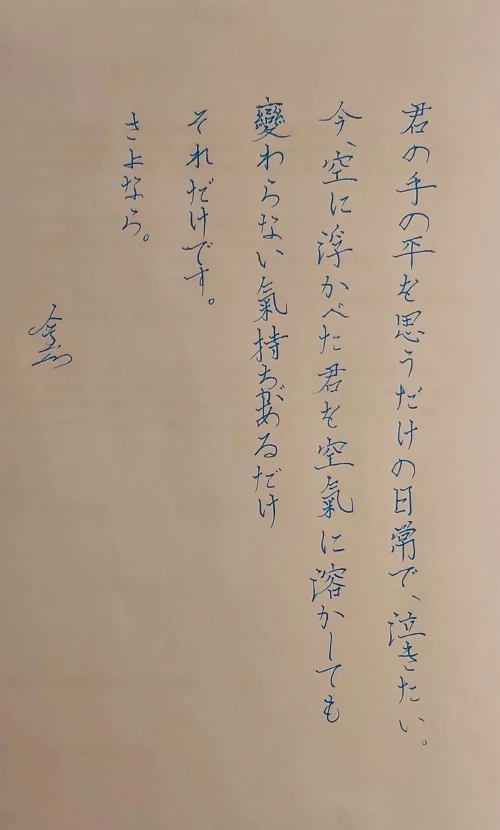 君の手の平を思うだけの日常で、泣きたい。
今、空に浮かべた君を空氣に溶かしても
變わらない氣持ちがあるだけ
それだけです。
さよなら。